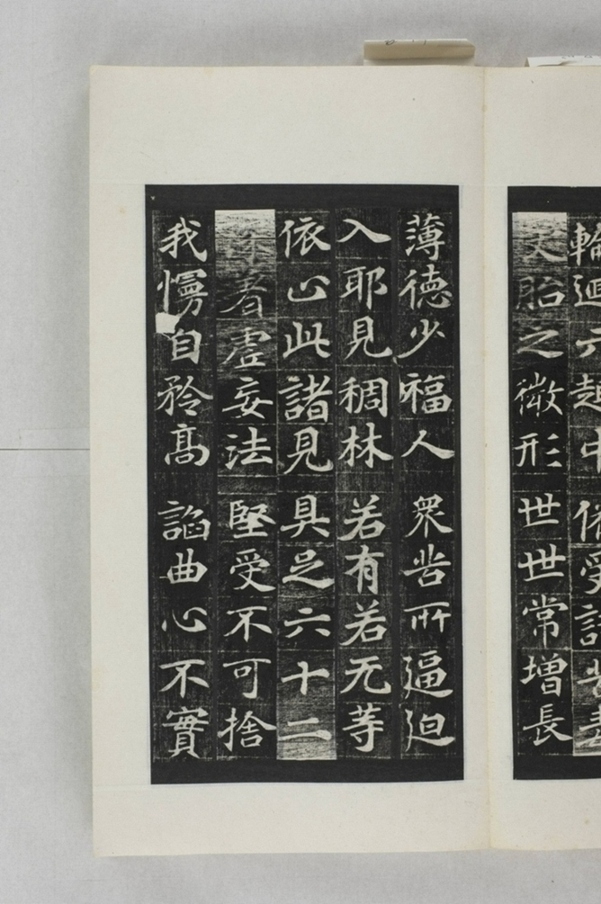 輪迴六趣中 俻受諸苦
胎之微形 世世常增長
薄德少福人 衆苦所逼迫
入邪見稠林 若有若无等
依止此諸見 具足六十二
深着虛妄法 堅受不可捨
我慢自矜高 謟曲心不實